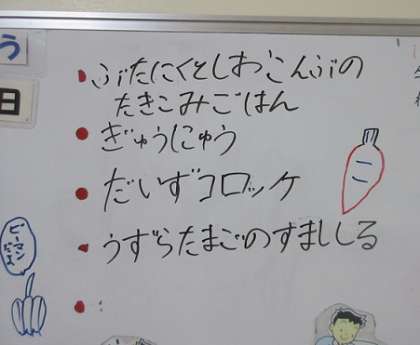 う
日
ぶたにくとしおこんぶの
たきこみごはん
ぎゅうにゅう
だいずコロッケ
うずらたまごのすましじる
ピーマン
だよ